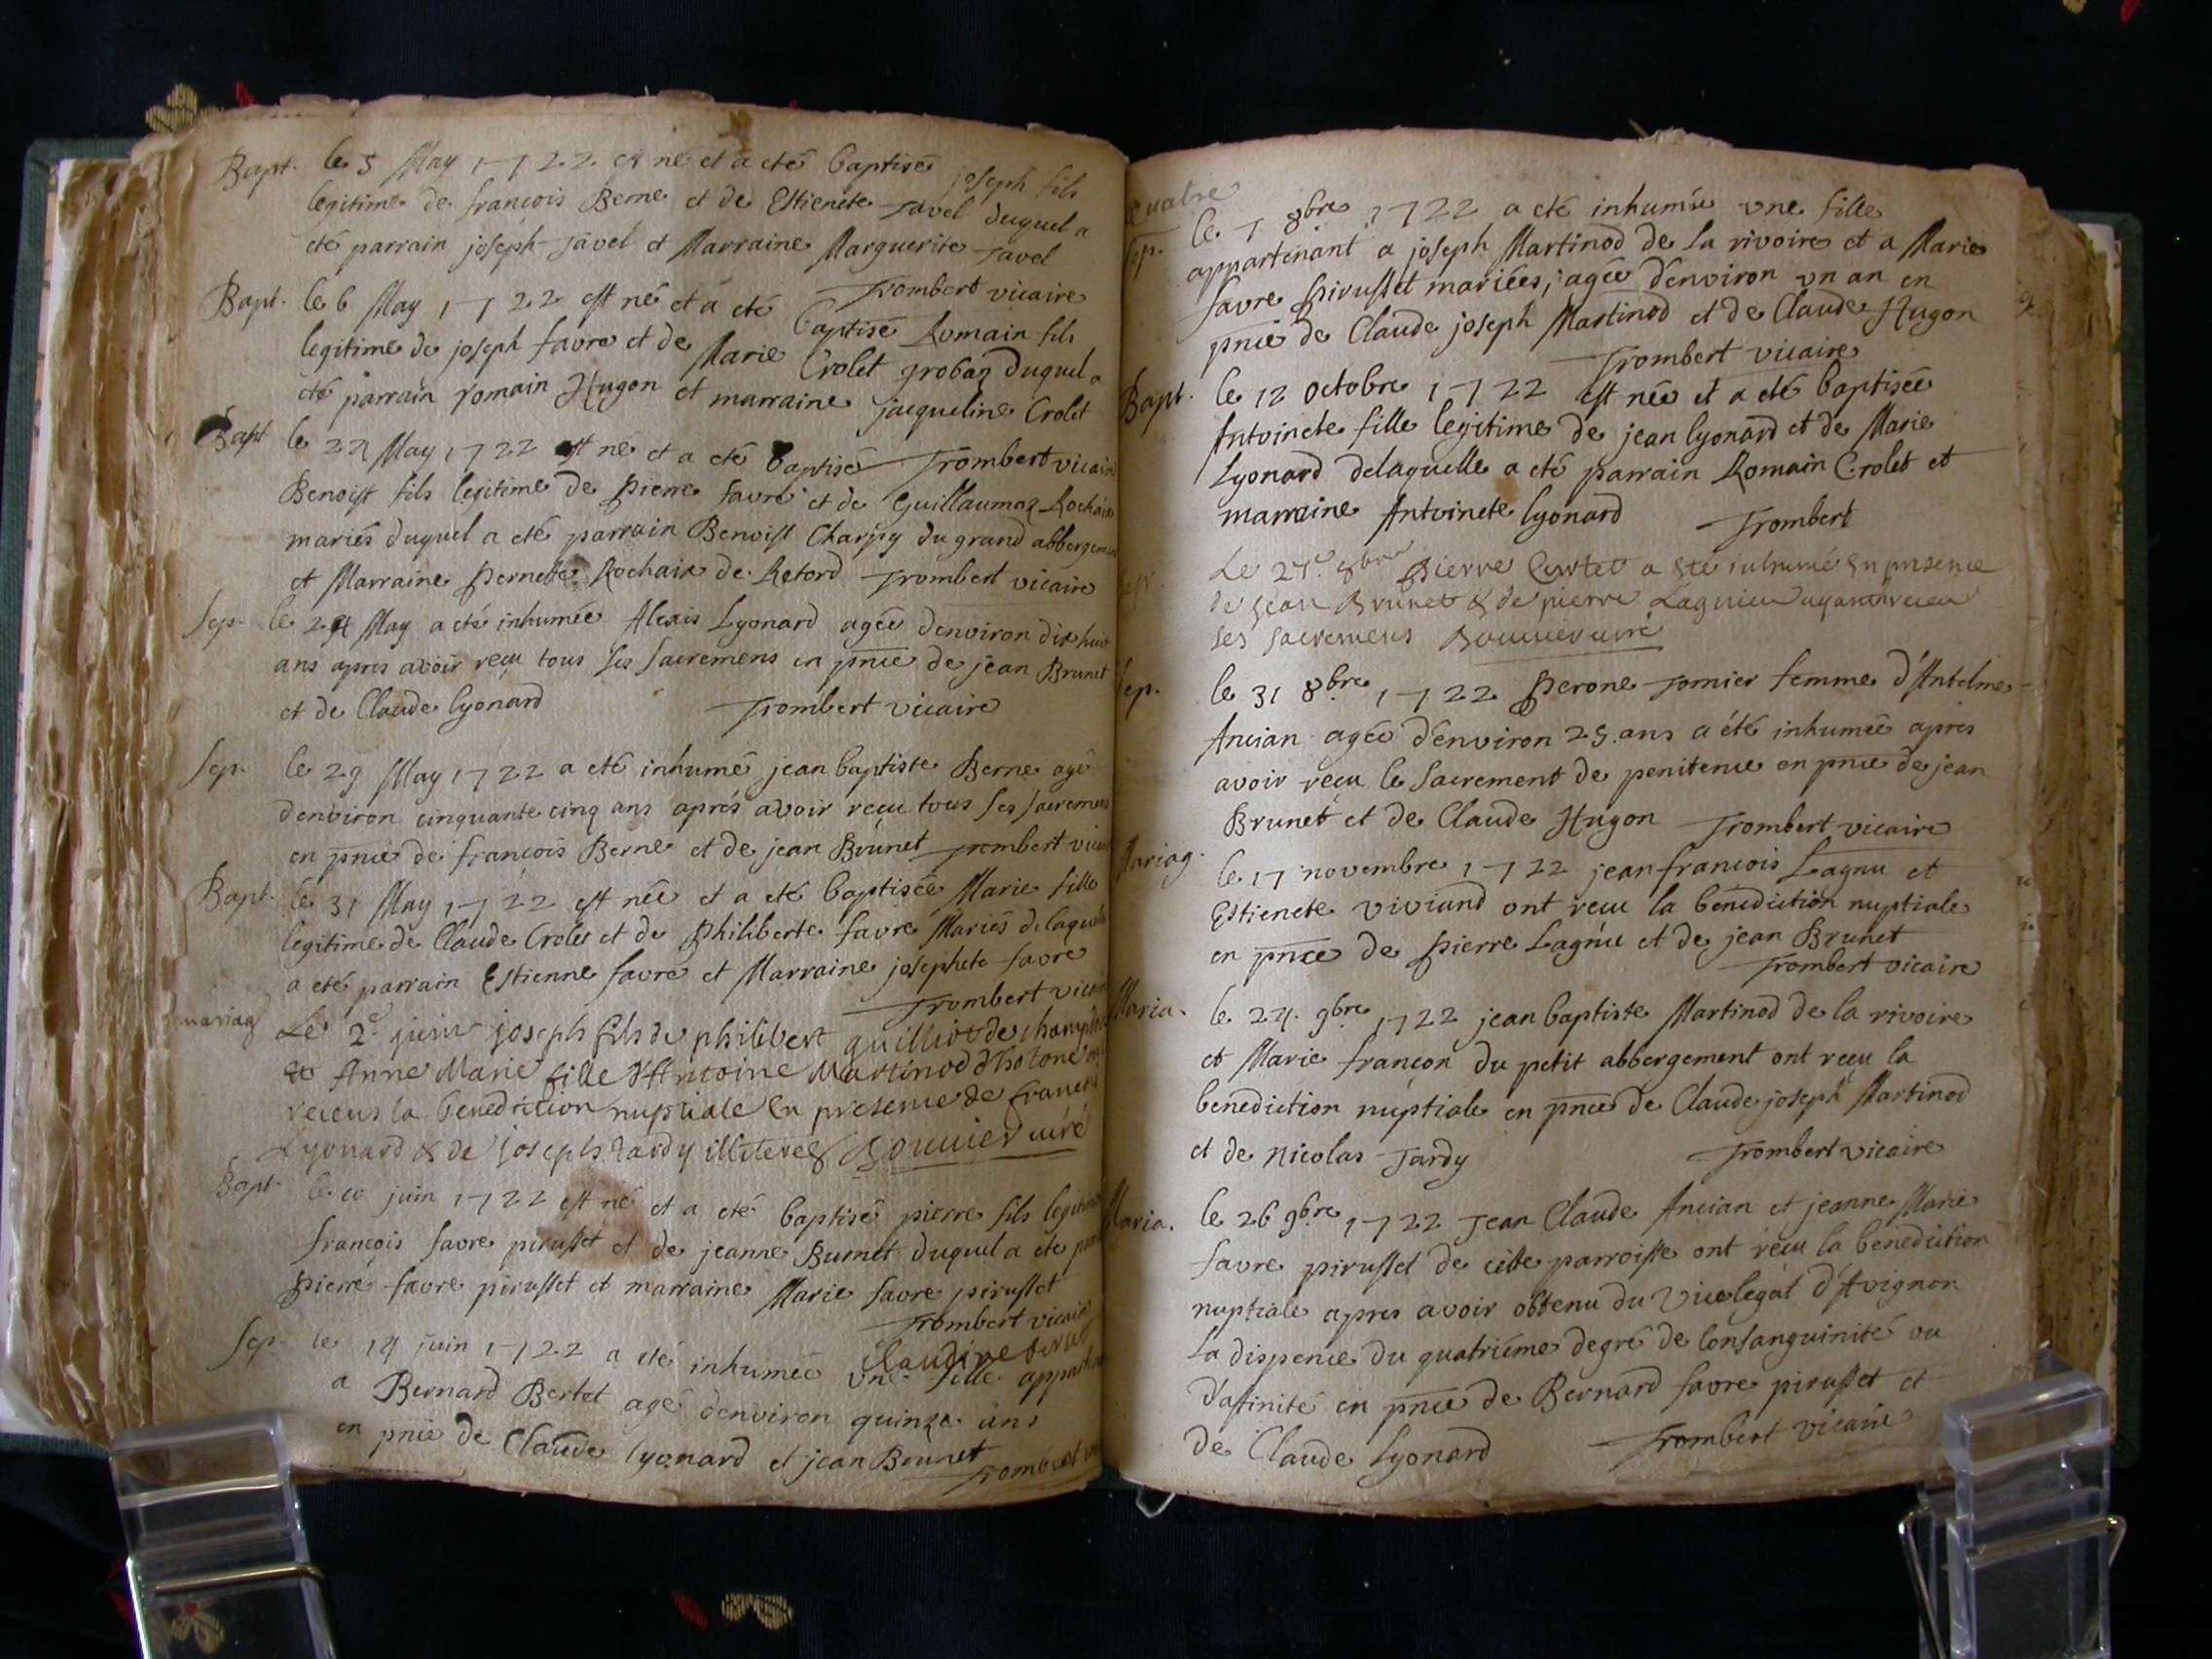 Bapt. le 5 May 1722 est né et a eté baptisé joseph fils
legitime de françois Berne et de Estienete Tavel duquel a
eté parrain joseph Tavel et Marraine Marguerite Tavel
Trombert vicaire
Bapt. le 6 May 1722 est né et a eté baptisé Romain fils
legitime de joseph favre et de Marie Crolet grobaz duquel a
eté parrain romain Hugon et marraine jacqueline Crolet
Trombert vicaire
Bapt le 22 May 1722 est né et a eté baptisé
Benoist fils legitime de pierre favre et de Guillaumaz Rochaix
mariés duquel a eté parrain Benoist Charpy du grand abbergement
et Marraine pernette Rochaix de Retord Trombert vicaire
Sep. le 24 May a eté inhumée Alexis Lyonard agée denviron dix huit
ans apres avoir reçu tous ses sacremens en pnce de jean Brunet
et de Claude lyonard Trombert vicaire
Sep. le 29 May 1722 a eté inhumé jean baptiste Berne agé
denviron cinquante cinq ans aprés avoir reçu tous ses sacremens
en pnce de françois Berne et de jean Brunet Trombert vicaire
Bapt. le 31 May 1722 est née et a eté baptisée Marie fille
legitime de Claude Crolet et de philiberte favre Mariés delaquelle
a eté parrain Estienne favre et Marraine josephete favre
Trombert vicaire
mariag Le 2e juin joseph fils de philibert guilliot de champd
et Anne Marie fille d'Antoine Martinod d'hotone ont
receus la benediction nuptiale en presence de francois
Lyonard & de joseph tardy illiteres Bouvier curé
Bapt. le 10 juin 1722 est né et a eté baptisé pierre fils legitime
françois favre pirusset et de jeanne Burnet duquel a eté
pierre favre pirusset et marraine Marie favre pirusset
Trombert vicaire
Sep. le 14 juin 1722 a eté inhumée une fille
Claudine
a Bernard Bertet agé denviron quinze ans
en pnce de Claude lyonard et jean Brunet
Trombert
quatre
Sep. le 7 8bre 1722 a eté inhumée une fille
appartenant a joseph Martinod de la rivoire et a Marie
favre pirusset mariées, agée d'environ un an en
pnce de Claude joseph Martinod et de Claude Hugon
Trombert vicaire
Bapt. le 12 octobre 1722 est née et a eté baptisée
Antoinete fille legitime de jean lyonard et de Marie
Lyonard delaquelle a eté parrain Romain Crolet et
marraine Antoinete lyonard Trombert
Le 27e 8bre pierre Curtet a eté inhumé en presence
de jean Brunet & de pierre Lagnieu ayant receu
ses sacremens Bouvier curé
Sep. le 31 8bre 1722 perone Tornier femme d'Antelme
Ancian agée d'environ 25 ans a été inhumée apres
avoir reçu le sacrement de penitence en pnce de jean
Brunet et de Claude Hugon Trombert vicaire
Mariag. le 17 novembre 1722 jean françois Lagnu et
Estienete viviand ont reçu la benediction nuptiale
en pnce de pierre Lagnu et de jean Brunet
Trombert vicaire
Maria. le 24. 9bre 1722 jean baptiste Martinod de la rivoire
et Marie françon du petit abbergement ont reçu la
benediction nuptiale en pnce de Claude joseph Martinod
et de Nicolas Tardy Trombert vicaire
Maria. le 26 9bre 1722 jean Claude Ancian et jeanne Marie
favre pirusset de cette parroisse ont reçu la benediction
nuptiale apres avoir obtenu du vicelegat d'Avignon
la dispence du quatriéme degré de consanguinité ou
d'afinité en pnce de Bernard favre pirusset et
de Claude Lyonard Trombert vicaire